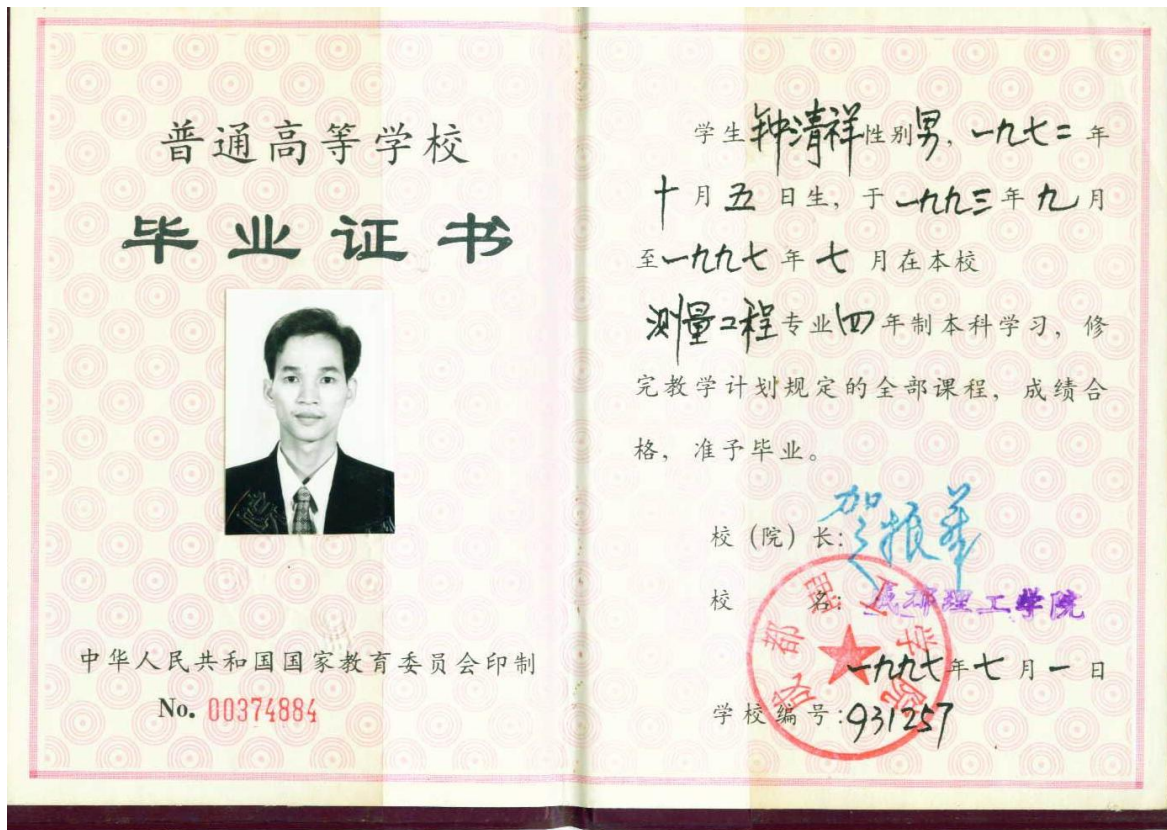 普通高等学校
毕业证书
中华人民共和国国家教育委员会印制
No. 00374884
学生钟清祥性别男，一九七二年
十月五日生，于一九九三年九月
至一九九七年七月在本校
测量工程专业四年制本科学习，修
完教学计划规定的全部课程，成绩合
格，准予毕业。
校（院）长：贺振华
校 名：成都理工学院
成都理工学院
一九九七年七月一日
学校编号：931257